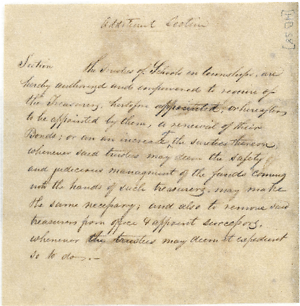 Additional Section
[HB 58]
Section the Trustees of Schools in townships, are
hereby authorized and empowered to require of
the Treasurers, heretofore appointed, or hereafter
to be appointed by them, a renewal of their
Bonds; or an increase of the sureties thereon,
whenever said trustees may deem the safety
and judicious management of the funds coming
into the hands of such treasurers, may make
the same necessary; and also to remove said
treasurers from office & appoint successors,
whenever the trustees may deem it expedient
so to do.—